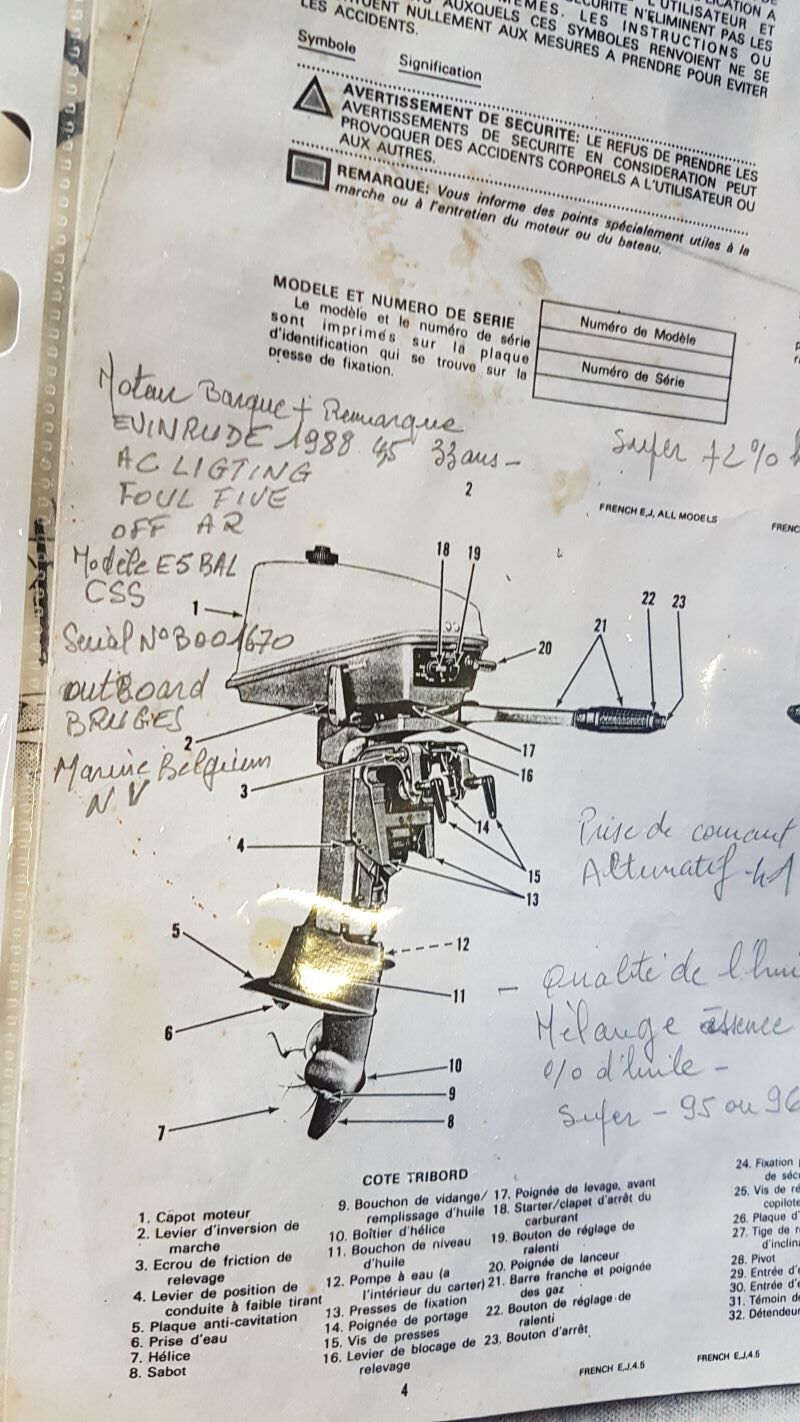 L'UTILISATEUR ET
SECURITE N'ELIMINENT PAS LES
MEMES. LES INSTRUCTIONS OU
AUXQUELS CES SYMBOLES RENVOIENT NE SE
NULLEMENT AUX MESURES A PRENDRE POUR EVITER
LES ACCIDENTS.
Symbole Signification
AVERTISSEMENT DE SECURITE: LE REFUS DE PRENDRE LES
AVERTISSEMENTS DE SECURITE EN CONSIDERATION PEUT
PROVOQUER DES ACCIDENTS CORPORELS A L'UTILISATEUR OU
AUX AUTRES.
REMARQUE: Vous informe des points spécialement utiles à la
marche ou à l'entretien du moteur ou du bateau.
MODELE ET NUMERO DE SERIE
Le modèle et le numéro de série
sont imprimés sur la plaque
d'identification qui se trouve sur la
presse de fixation.
Numéro de Modèle
Numéro de Série
Moteur Barque + Remarque
EVINRUDE 1988 4,5 33 ans -
AC LIGTING
FOUL FIVE
OFF AR
Super +2%
2
FRENCH E,J, ALL MODELS
FRENC
Modèle E5 BAL
CSS
Serial N° B001670
outBoard
BRUGES
Marine Belgium
NV
18 19
1
20
21
22 23
2
17
16
3
14
4
15
13
5
12
11
6
10
9
8
7
Prise de courant
Alternatif
- Qualité de l'hui
Mélange essence
% d'huile -
Super - 95 ou 96
COTE TRIBORD
1. Capot moteur
2. Levier d'inversion de
marche
3. Ecrou de friction de
relevage
4. Levier de position de
conduite à faible tirant
5. Plaque anti-cavitation
6. Prise d'eau
7. Hélice
8. Sabot
9. Bouchon de vidange/
remplissage d'huile
10. Boîtier d'hélice
11. Bouchon de niveau
d'huile
12. Pompe à eau (a
l'intérieur du carter)
13. Presses de fixation
14. Poignée de portage
15. Vis de presses
16. Levier de blocage de
relevage
17. Poignée de levage, avant
18. Starter/clapet d'arrêt du
carburant
19. Bouton de réglage de
ralenti
20. Poignée de lanceur
21. Barre franche et poignée
des gaz
22. Bouton de réglage de
ralenti
23. Bouton d'arrêt
24. Fixation
de séc
25. Vis de ré
copilote
26. Plaque d'
27. Tige de r
d'inclina
28. Pivot
29. Entrée d'
30. Entrée d'
31. Témoin d
32. Détendeur
FRENCH E,J,4.5
FRENCH E,J,4.5
4